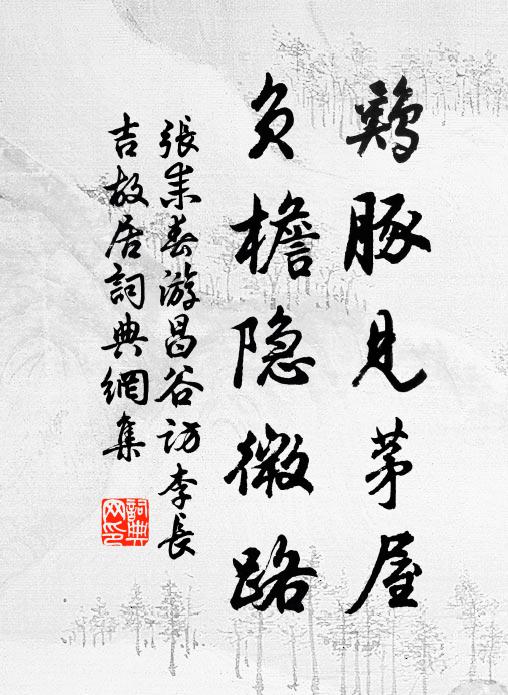 鷄豚見茅屋
負檐隐微路
張耒春游昌谷访李長
吉故居詞典網集
詞典网印